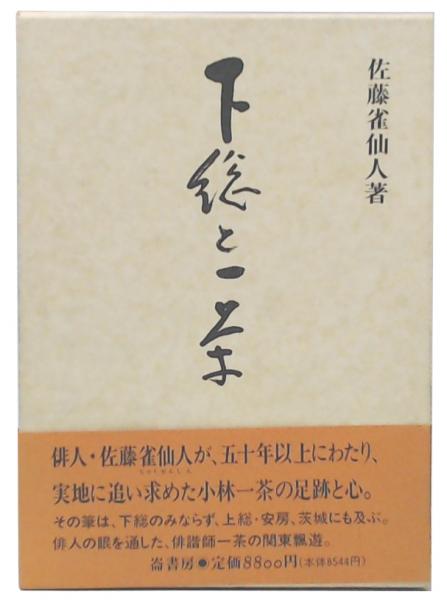 佐藤雀仙人著
下総と一茶
俳人・佐藤雀仙人が、五十年以上にわたり、
実地に追い求めた小林一茶の足跡と心。
その筆は、下総のみならず、上総・安房、茨城にも及ぶ。
俳人の眼を通した、俳諧師一茶の関東飄遊。
崙書房●定価8800円(本体8544円)